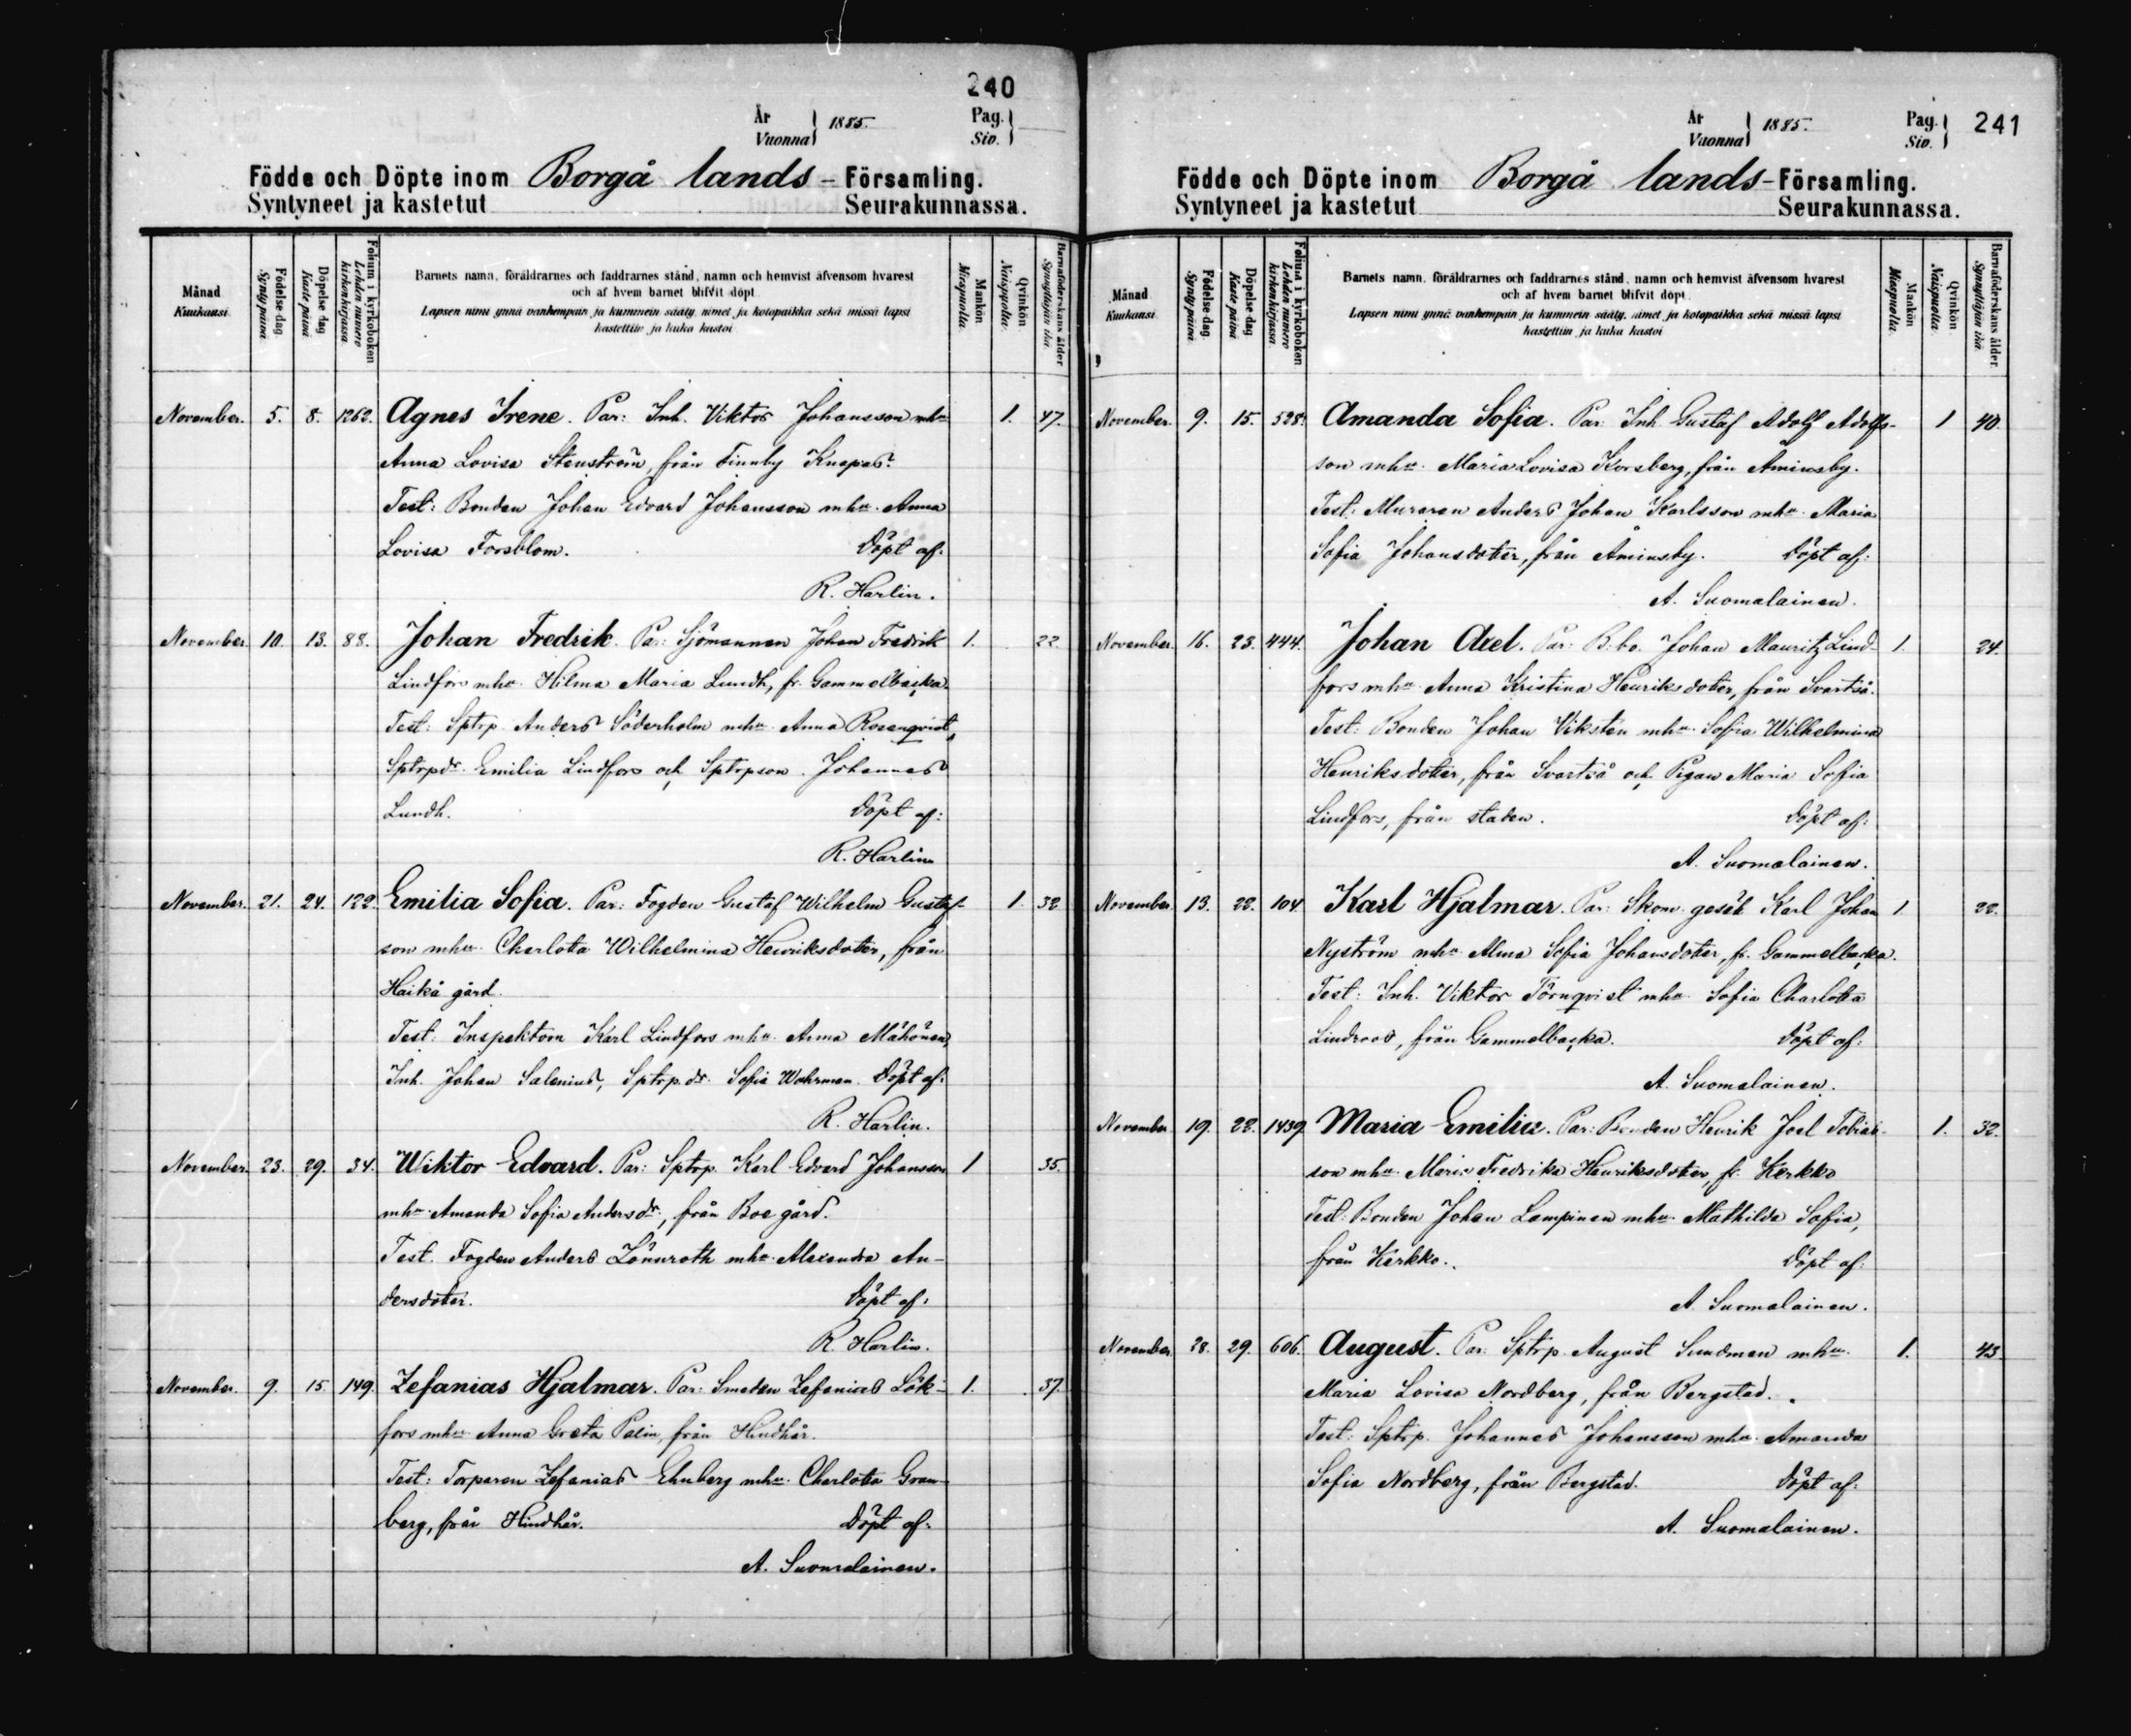 240
År
Vuonna } 1885.
Pag.
Siv.
Födde och Döpte inom Borgå lands-Församling.
Syntyneet ja kastetut Seurakunnassa.
Månad
Kuukausi.
Födelse dag.
Syntypäivä.
Döpelse dag.
Kaste päivä.
Folium i kyrkoboken
Lehden numero kirkonkirjassa.
Barnets namn, föräldrarnes och faddrarnes stånd, namn och hemvist äfvensom hvarest
och af hvem barnet blifvit döpt.
Lapsen nimi ynnä vanhempain ja kummein sääty, nimet ja kotopaikka sekä missä lapsi
kastettiin ja kuka kastoi
Mankön
Miespuolia.
Qvinkön
Naispuolia.
Barnaföderskans ålder
Synnyttäjän ikä.
November. 5. 8. 1262. Agnes Irene. Par: Inh. Viktor Johansson mhu 1. 47.
Anna Lovisa Stenström, från Finnby Knapas.
Test: Bonden Johan Edvard Johansson mhu Anna
Lovisa Forsblom. Döpt af:
R. Harlin.
November 10. 13. 88. Johan Fredrik. Par: Sjömannen Johan Fredrik 1. 22.
Lindfors mhu Hilma Maria Lundh, fr. Gammelbacka.
Test: Sptrp. Anders Söderholm mhu Anna Rosenqvist,
Sptrpdr. Emilia Lindfors och Sptrpson. Johannes
Lundh. Döpt af:
R. Harlin
November. 21. 24. 122. Emilia Sofia. Par: Fogden Gustaf Wilhelm Gustaf- 1. 32
son mhu Charlotta Wilhelmina Henriksdotter, från
Haikå gård.
Test: Inspektorn Karl Lindfors mhu Anna Mähönen,
Inh. Johan Salenius, Sptrp.dr. Sofia Wohrman. Döpt af:
R. Harlin.
November. 23. 29. 34. Wiktor Edvard. Par: Sptrp. Karl Edvard Johansson 1 35.
mhu Amanda Sofia Andersdr, från Boe gård.
Test. Fogden Anders Lönnroth mhu Alexandra An-
dersdotter. Döpt af:
R. Harlin.
November. 9. 15. 149. Zefanias Hjalmar. Par: Smeden Zefanias Lök- 1. 37.
fors mhu Anna Greta Palin, från Hindhår.
Test: Torparen Zefanias Ehnberg mhu Charlotta Gran-
berg, från Hindhår. Döpt af:
A. Suomalainen.
241
År
Vuonna } 1885.
Pag.
Siv.
Födde och Döpte inom Borgå lands-Församling.
Syntyneet ja kastetut Seurakunnassa.
Månad
Kuukausi
Födelse dag.
Syntypäivä.
Döpelse dag.
Kaste päivä.
Folium i kyrkoboken
Lehden numero kirkonkirjassa.
Barnets namn, föräldrarnes och faddrarnes stånd, namn och hemvist äfvensom hvarest
och af hvem barnet blifvit döpt.
Lapsen nimi ynnä vanhempain ja kummein sääty, nimet ja kotopaikka sekä missä lapsi
kastettiin ja kuka kastoi
Mankön
Miespuolia.
Qvinkön
Naispuolia.
Barnaföderskans ålder.
Synnyttäjän ikä.
November. 9. 15. 528. Amanda Sofia. Par: Inh. Gustaf Adolf Adolfs- 1 40.
son mhu Maria Lovisa Korsberg, från Åminsby.
Test: Muraren Anders Johan Karlsson mhu Maria
Sofia Johansdotter, från Åminsby. Döpt af:
A. Suomalainen.
November. 16. 23. 444. Johan Axel. Par: B.bo. Johan Mauritz Lind- 1. 24.
fors mhu Anna Kristina Henriksdotter, från Svartså.
Test: Bonden Johan Vikstén mhu Sofia Wilhelmina
Henriksdotter, från Svartså och Pigan Maria Sofia
Lindfors, från staden. Döpt af:
A. Suomalainen.
November. 13. 22. 104. Karl Hjalmar. Par: Skom. gesäl Karl Johan 1. 22.
Nyström mhu Alma Sofia Johansdotter, fr. Gammelbacka.
Test: Inh. Viktor Törnqvist mhu Sofia Charlotta
Lindroos, från Gammelbacka. Döpt af:
A. Suomalainen.
November 19. 22. 1439. Maria Emilia. Par: Bonden Henrik Joel Tobias- 1. 32.
son mhu Maria Fredrika Henriksdotter, fr. Kerkko
Test: Bonden Johan Lampinen mhu Mathilda Sofia,
från Kerkko. Döpt af:
A. Suomalainen.
November. 28. 29. 606. August. Par: Sptrp. August Sundman mhu 1. 43.
Maria Lovisa Nordberg, från Bergstad.
Test: Sptrp. Johannes Johansson mhu Amanda
Sofia Nordberg, från Bergstad. Döpt af:
A. Suomalainen.